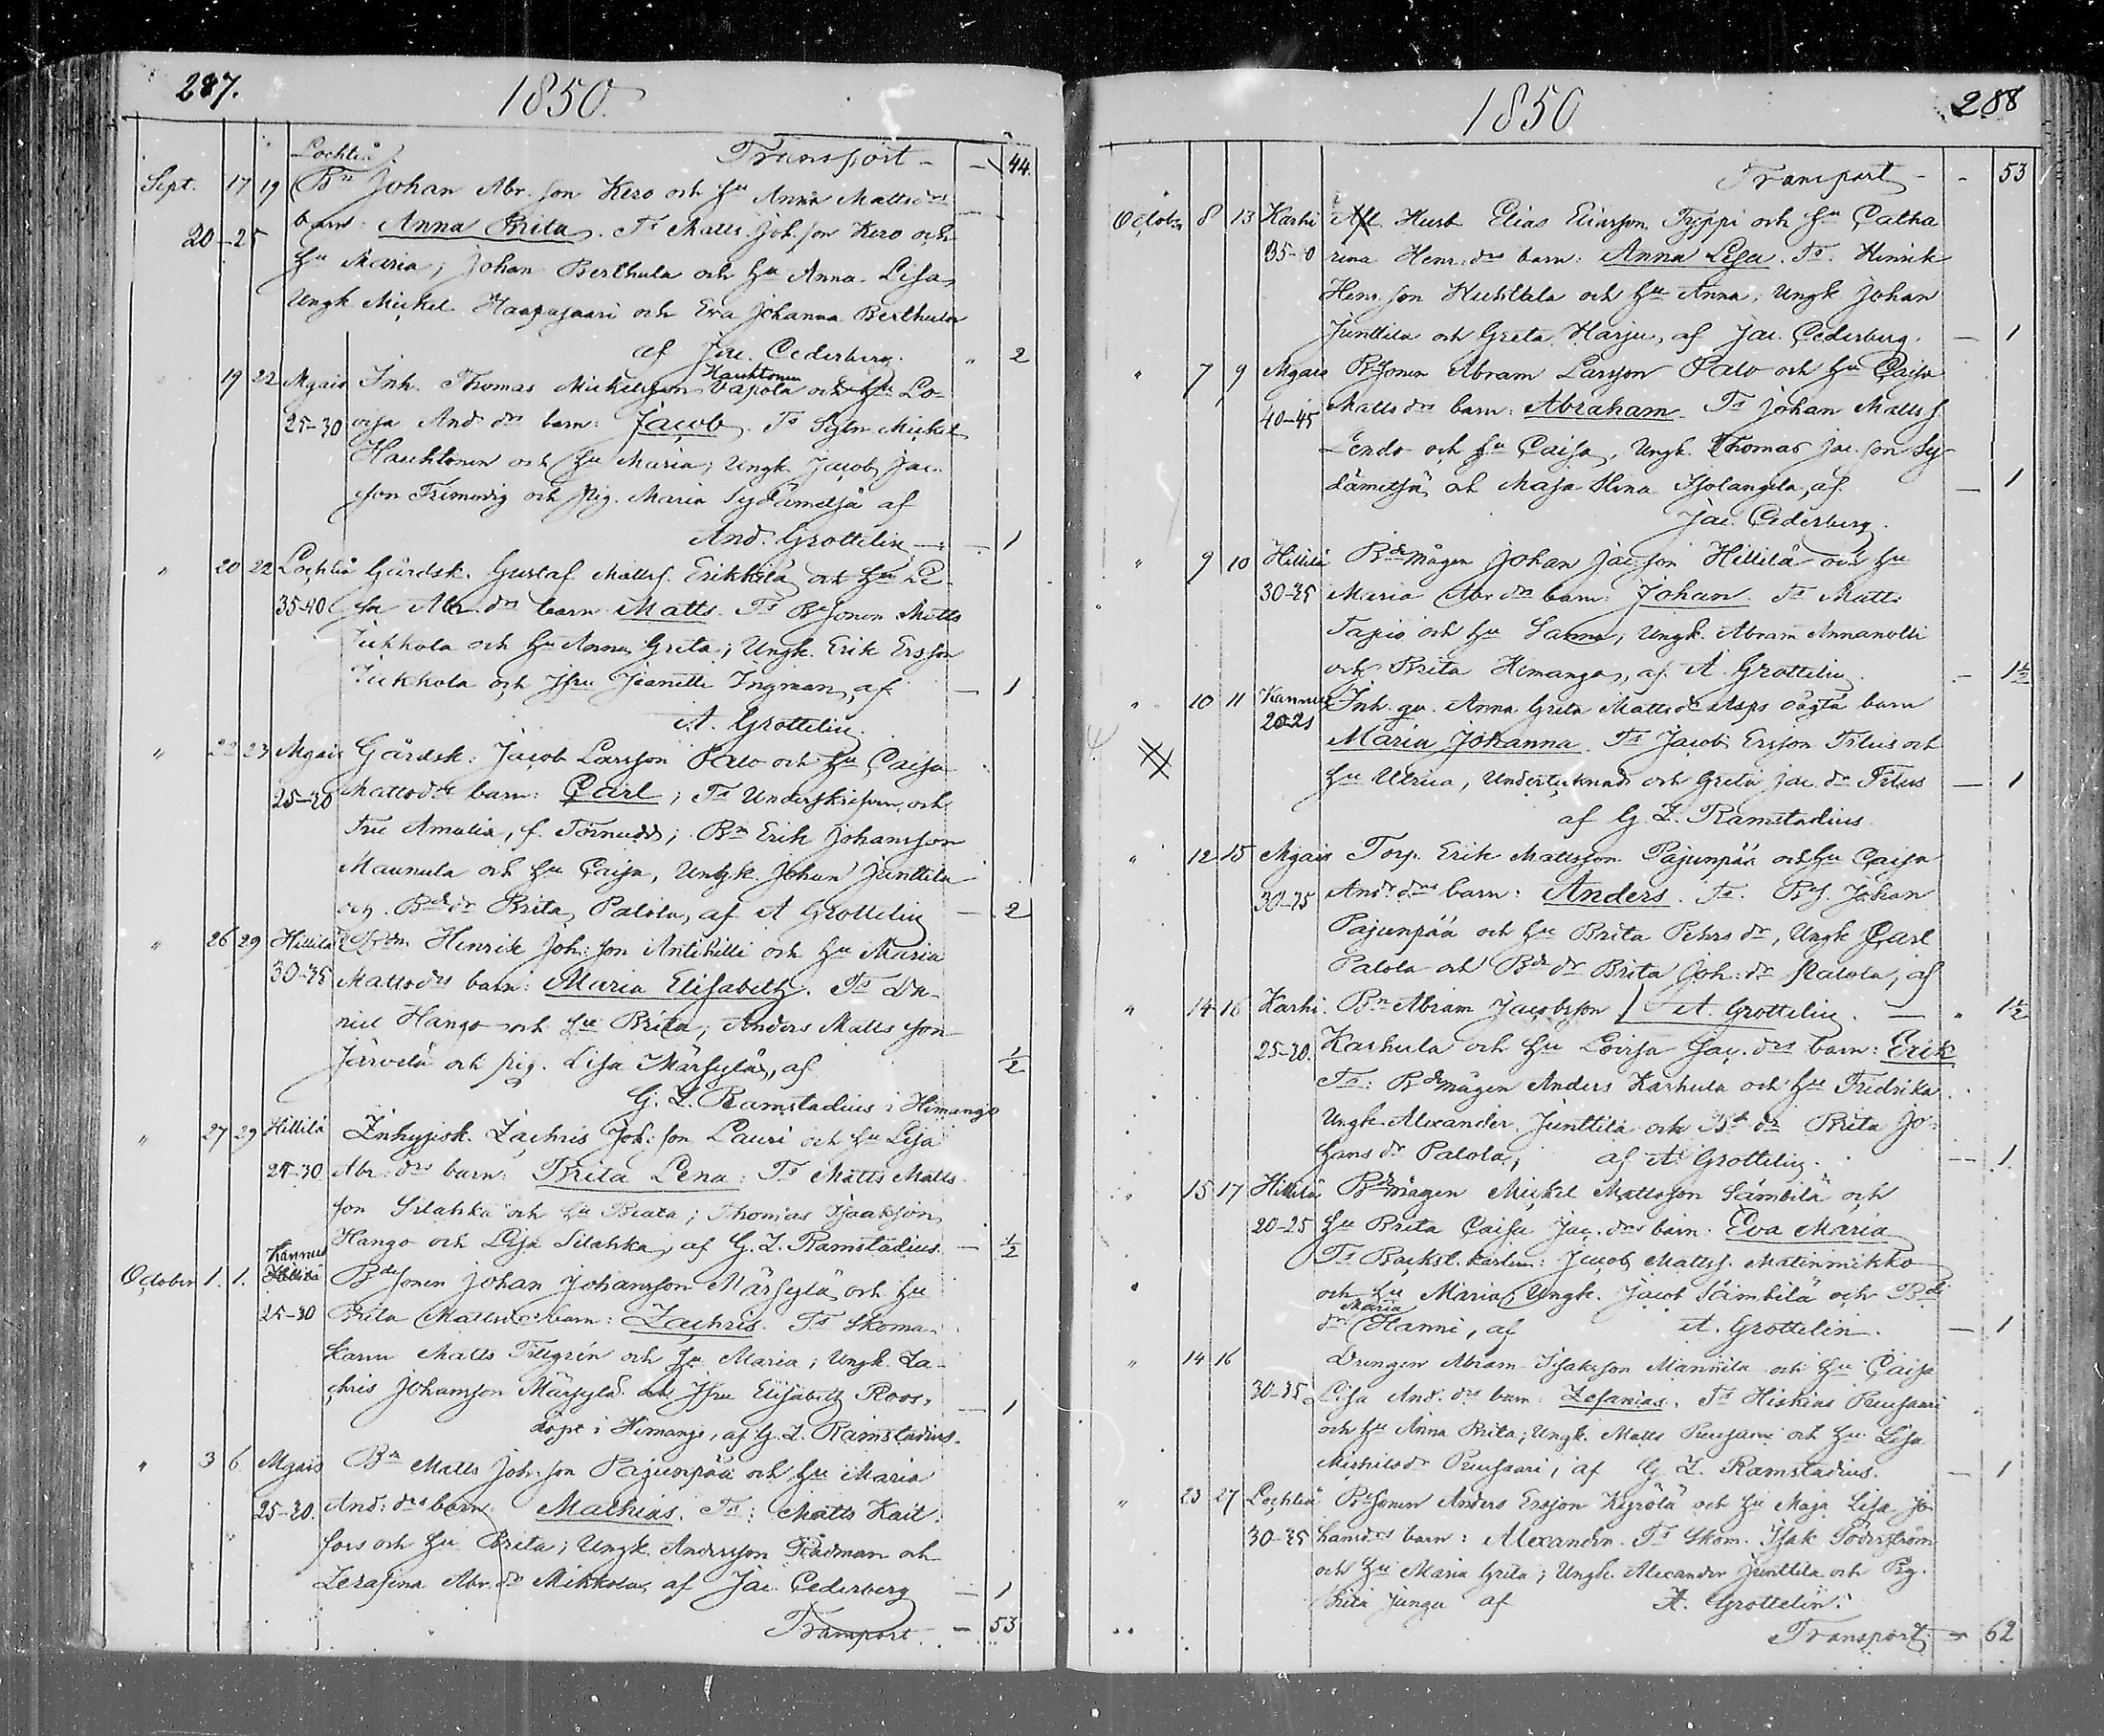 287.
1850.
Lochteå Transport - - 44.
Sept. 17 19 Bn Johan Abr. son Kero och hu Anna Mattsdrs
20-25 barn: Anna Brita. Ts Matts Joh. son Kero och
hu Maria; Johan Berthula och hu Anna Lisa,
Ungk. Mickel Haapasaari och Eva Johanna Berthula
af Jac. Cederberg. " 2
Hauhtonen
" 19 22 Mgais Inh. Thomas Mickelsson Vapola och hu Lo-
25-30 visa And. drs barn: Jacob. Ts Sytn. Mickel
Hauhtonen och hu Maria; Ungk. Jacob Jac.
son Trimodig och pig. Maria Sydämetsä af
And. Grottelin - - 1
" 20 22 Lochteå Gårdsk. Gustaf Mattss. Erikkilä och hu Li-
35-40 sa Abr. drs barn Matts. Ts Bdsonen Matts
Jukkola och hu Anna Greta; Ungk. Erik Ersson
Jukkola och Jfru Jeanette Ingman, af - 1
A. Grottelin.
" 22 23 Mgais Gårdsk. Jacob Larsson Palo och hu Caisa
25-30 Mattsdrs barn: Carl; Ts Underskrifvare och
Fru Amalia, f. Törnudd; Bn Erik Johansson
Maunula och hu Caisa, Ungk. Johan Junttila
och Bde dr Brita Palola, af A Grottelin - 2
" 26 29 Hillilä Bdn Henrik Joh: son Antihilli och hu Maria
30-35 Mattsdrs barn: Maria Elisabeth. Ts Da-
niel Hango och hu Brita, Anders Matts son
Järvelä och pig. Lisa Märsylä, af ½
G. L. Ramstadius i Himango
" 27 29 Hillilä Inhysisk. Zachris Joh: son Lauri och hu Lisa
25-30 Abr: drs barn: Brita Lena: Ts Matts Matts
son Silahka och hu Beata; Thomas Isaaksson
Hango och Lisa Silahka, af G. L. Ramstadius. - ½
Kannus
October 1. 1. Hillilä Bdesonen Johan Johansson Märsylä och hu
25-30 Brita Mattsdrs barn: Zachris. Ts Skoma-
karen Matts Tillgrén och hu Maria; Ungk. Za-
chris Johansson Märsylä och Jfru Elisabeth Roos, - 1
döpt i Himango, af G. L. Ramstadius.
" 3 6 Mgais Bn Matts Joh. son Pajunpää och hu Maria
25-30. And: drs barn: Mathias. Ts: Matts Kait
fors och hu Brita; Ungk. Andersson Rådman och
Serafina Abr. dr Mikkola, af Jac. Cederberg - 1
Transport. - 53
1850
288
Transport - - 53
October 8 13 Karhi Afl. Husb. Elias Eliasson Typpi och hu Catha
35-0 rina Henr: drs barn: Anna Lisa. Ts. Hinrik
Henr. son Huhtala och hu Anna; Ungk. Johan
Junttila och Greta Harju, af Jac. Cederberg. - 1
" 7 9 Mgais Bdsonen Abram Larsson Palo och hu Caisa
40-45 Matts drs barn: Abraham. Ts Johan Matts s.
Lendo och hu Caisa, Ungk. Thomas Jac. son Sy-
dämetsä, och Maja Stina Isolangela, af - 1
Jac. Cederberg.
" 9 10 Hillilä Bdemågen Johan Jac. son Hillilä och hu
30-35 Maria Abr. drs barn: Johan. Ts Matts
Tapio och hu Sanna; Ungk. Abram Annanolli
och Brita Himango, af A. Grottelin. - 1½
" 10 11 Kannus Inh. qv. Anna Greta Mattsdr Asps oägta barn
20-21 Maria Johanna. Ts Jacob Ersson Tilus och
hu Ulrica, Undertecknad och Greta Jac. dr Tilus - 1
af G. L. Ramstadius.
" 12 15 Mgais Torp. Erik Mattsson Pajunpää och hu Caisa
30-35 And. drs barn: Anders. Ts. Bds. Johan
Pajunpää och hu Brita Pehrs dr, Ungk Carl
Palola och Bde dr Brita Joh: dr Palola, af
" 14 16 Karhi. Bn Abram Jacobsson / A. Grottelin. - " 1½
25-30. Karhula och hu Lovisa Jac. drs barn: Erik
Ts: Bdemågen Anders Karhula och hu Fredrika
Ungk. Alexander Junttila och Bd dr Brita Jo-
hans dr Palola, af A. Grottelin. - 1.
" 15 17 Hillilä Bdemågen Mickel Mattsson Sämbilä och
20-25 hu Brita Caisa Jac. drs barn. Eva Maria
Ts Backst. karlen: Jacob Mattss. Matinmikko
och hu Maria, Ungk. Jacob Sämbilä och Bde
Maria
dr Hanni, af A. Grottelin. - 1
" 14 16 Drengen Abram Isaksson Mannila och hu Caisa
30-35 Lisa And. drs barn: Zefanias. Ts Hiskias Puusaari
och hu Anna Brita; Ungk. Matts Puusaari och hu Lisa
Mickelsdr Puusaari, af G. L. Ramstadius. - 1
" 23 27 Lochteå Bdsonen Anders Ersson Keyrölä och hu Maja Lisa Jo-
30-35 hansdrs barn: Alexander. Ts Skom. Isak Söderström
och hu Maria Greta; Ungk. Alexander Junttila och Pig.
Brita Junga af A. Grottelin.
Transport. - 62